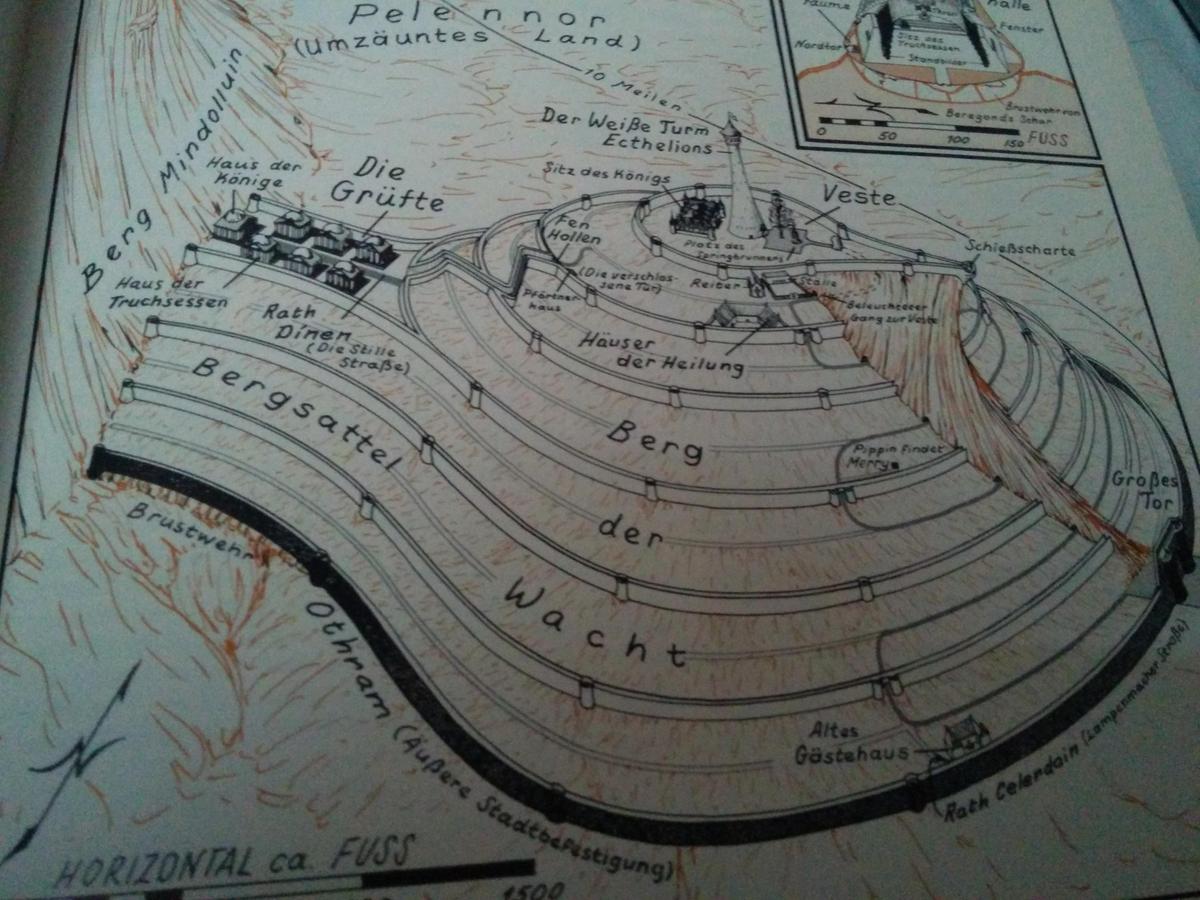 Pelennor
(Umzäuntes Land)
10 Meilen
Räume
halle
Fenster
Sitz des
Truchsessen
Nordtor
Standbilder
Brustwehr von
Beregonds Schar
0 50 100 150 FUSS
Berg Mindolluin
Der Weiße Turm
Ecthelions
Haus der
Könige
Die
Grüfte
Sitz des Königs
Veste
Fen
Hollen
Platz des
Springbrunnens
Schießscharte
(Die verschlos-
sene Tür)
Reiter
Ställe
Pförtner-
haus
Beleuchteter
Gang zur Veste
Haus der
Truchsessen
Rath
Dínen
(Die Stille
Straße)
Häuser
der Heilung
Bergsattel
Berg
der
Wacht
Pippin findet
Merry
Großes
Tor
Brustwehr
Othram (Äußere Stadtbefestigung)
Altes
Gästehaus
Rath Celerdain (Lampenmacher Straße)
HORIZONTAL ca. FUSS
1500